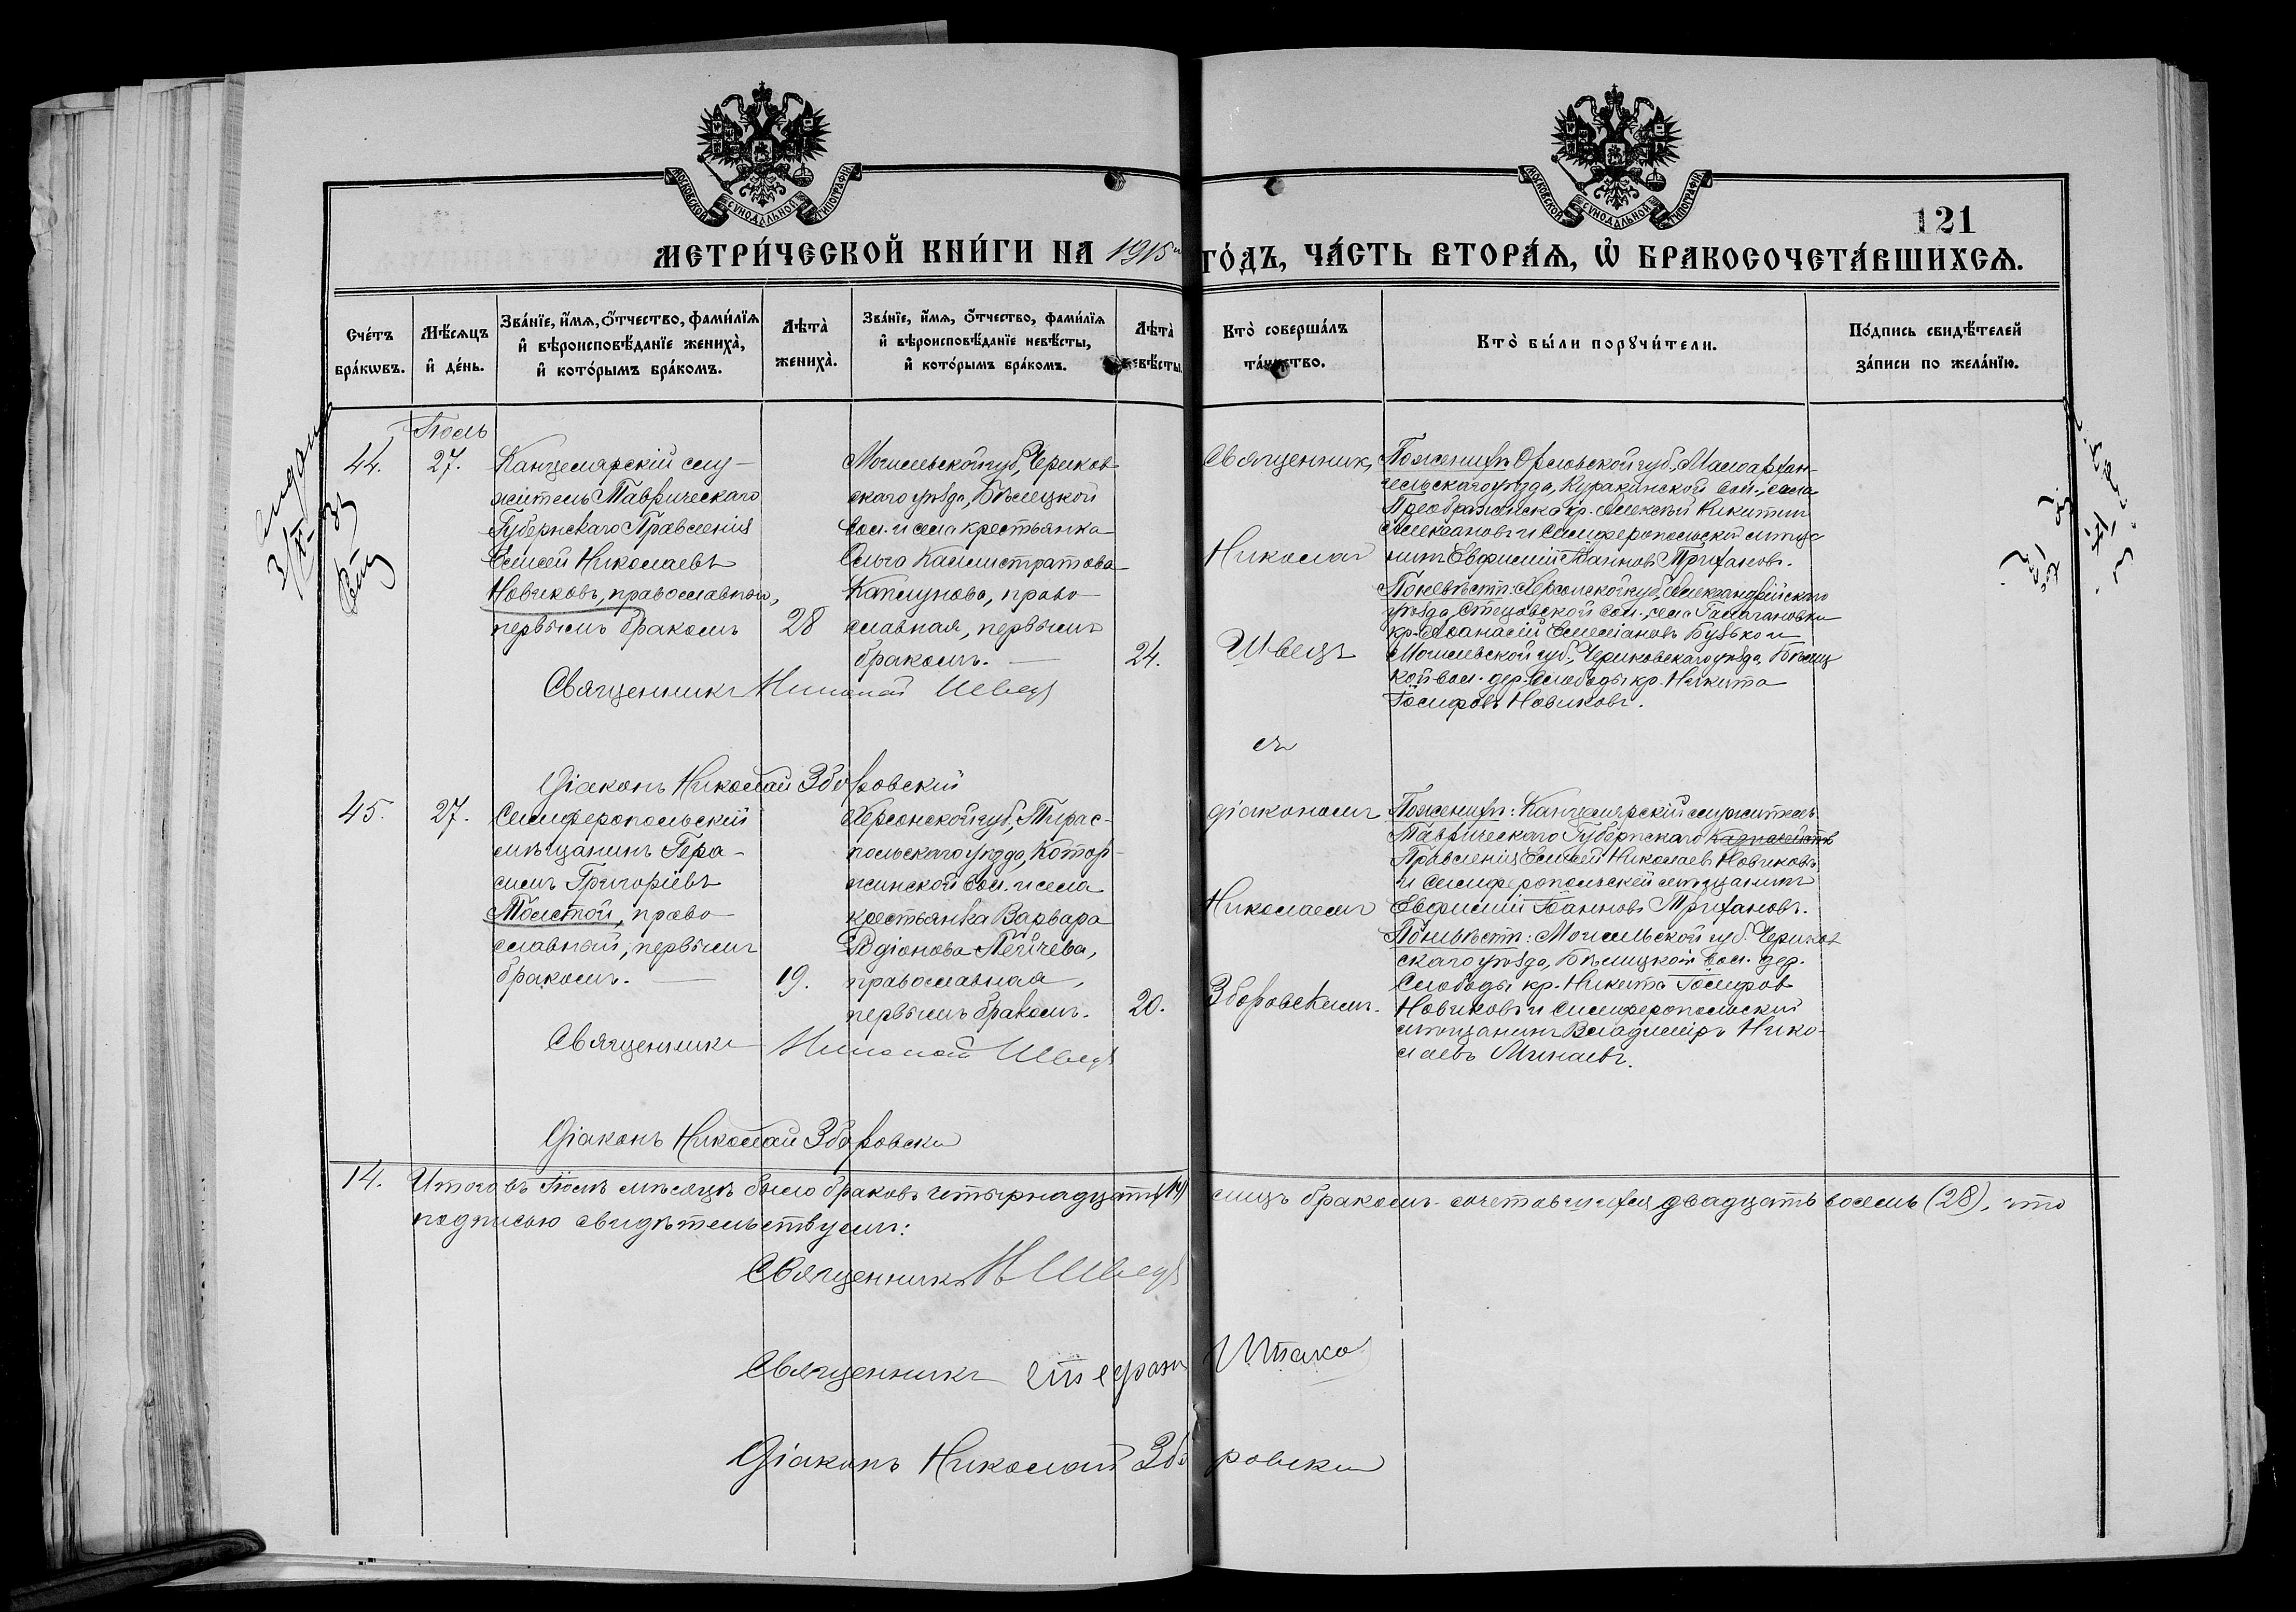 МОСКОВСКОЙ СѴНОДАЛЬНОЙ ТИПОГРАФІИ
МОСКОВСКОЙ СѴНОДАЛЬНОЙ ТИПОГРАФІИ
121
МЕТРИ́ЧЕСКОЙ КНИ́ГИ НА 1915й ГО́ДЪ, ЧА́СТЬ ВТОРА́Ѧ, Ѡ҆ БРАКОСОЧЕТА́ВШИХСѦ.
Сче́тъ бра́кѡвъ.
Мѣ́сѧцъ и҆ де́нь.
Зва́нїе, и҆́мѧ, о҆́тчество, фами́лїѧ и҆ вѣроисповѣ́данїе жениха̀, и҆ кото́рымъ бра́комъ.
Лѣта̀ жениха̀.
Зва́нїе, и҆́мѧ, о҆́тчество, фами́лїѧ и҆ вѣроисповѣ́данїе невѣ́сты, и҆ кото́рымъ бра́комъ.
Лѣта̀ невѣ́сты.
Кто̀ соверша́лъ та́инство.
Кто̀ бы́ли порꙋчи́тели.
По́дпись свидѣ́телей за́писи по жела́нїю.
Іюль
44.
27.
Канцелярскій слу-
житель Таврическаго
Губернскаго Правленія
Елисей Николаевъ
Новиковъ, православный,
первымъ бракомъ
28
Могилевской губ., Чериков
скаго уѣзда, Бѣлицкой
вол. и села крестьянка
Ольга Каллистратова
Каплунова, право-
славная, первымъ
бракомъ. —
24.
Священник
Николай
Швецъ
По женихѣ: Орловской губ., Малоархан-
гельскаго уѣзда, Куракинской вол., села
Преображенска кр. Алексѣй Никитин
и Симферопольскій мѣща
нинъ Евфимій Іоанновъ Трифановъ.
По невѣстѣ: Херсонской губ., Александрійскаго
уѣзда, вол., села
кр. Аѳанасій Емеліановъ Бузько и
Могилевской губ., Чериковскаго уѣзда, Бѣлиц
кой вол. дер. Слободы кр. Никита
Іосифовъ Новиковъ.
Священникъ Николай Швецъ
съ
Діаконъ Николай Зборовскій
45.
27.
Симферопольскій
мѣщанинъ Гера-
симъ Григоріевъ
Толстой, право-
славный, первымъ
бракомъ. —
19.
Херсонской губ., Тирас-
польскаго уѣзда,
вол. и села
крестьянка Варвара
Родіонова
православная,
первымъ бракомъ.
20.
діакономъ
Николаемъ
Зборовскимъ.
По женихѣ: Канцелярскій служитель
Таврическаго Губернскаго Казначейств
Правленія Елисей Николаевъ Новиковъ
и Симферопольскій мѣщанинъ
Евфимій Іоанновъ Трифановъ.
По невѣстѣ: Могилевской губ. Чериков
скаго уѣзда, Бѣлицкой вол. дер.
Слободы кр. Никита Іосифов
Новиковъ и Симферопольскій
мѣщанинъ Владимиръ Нико-
лаевъ Минаевъ.
Священникъ Николай Швецъ
Діаконъ Николай Зборовски
14. Итого въ Іюлѣ мѣсяцѣ было браковъ четырнадцать (14) лицъ бракомъ сочетавшихся двадцать восемь (28), что
подписью свидѣтельствуемъ:
Священникъ Н Швецъ
Священникъ Стефанъ
Діаконъ Николай Зборовски